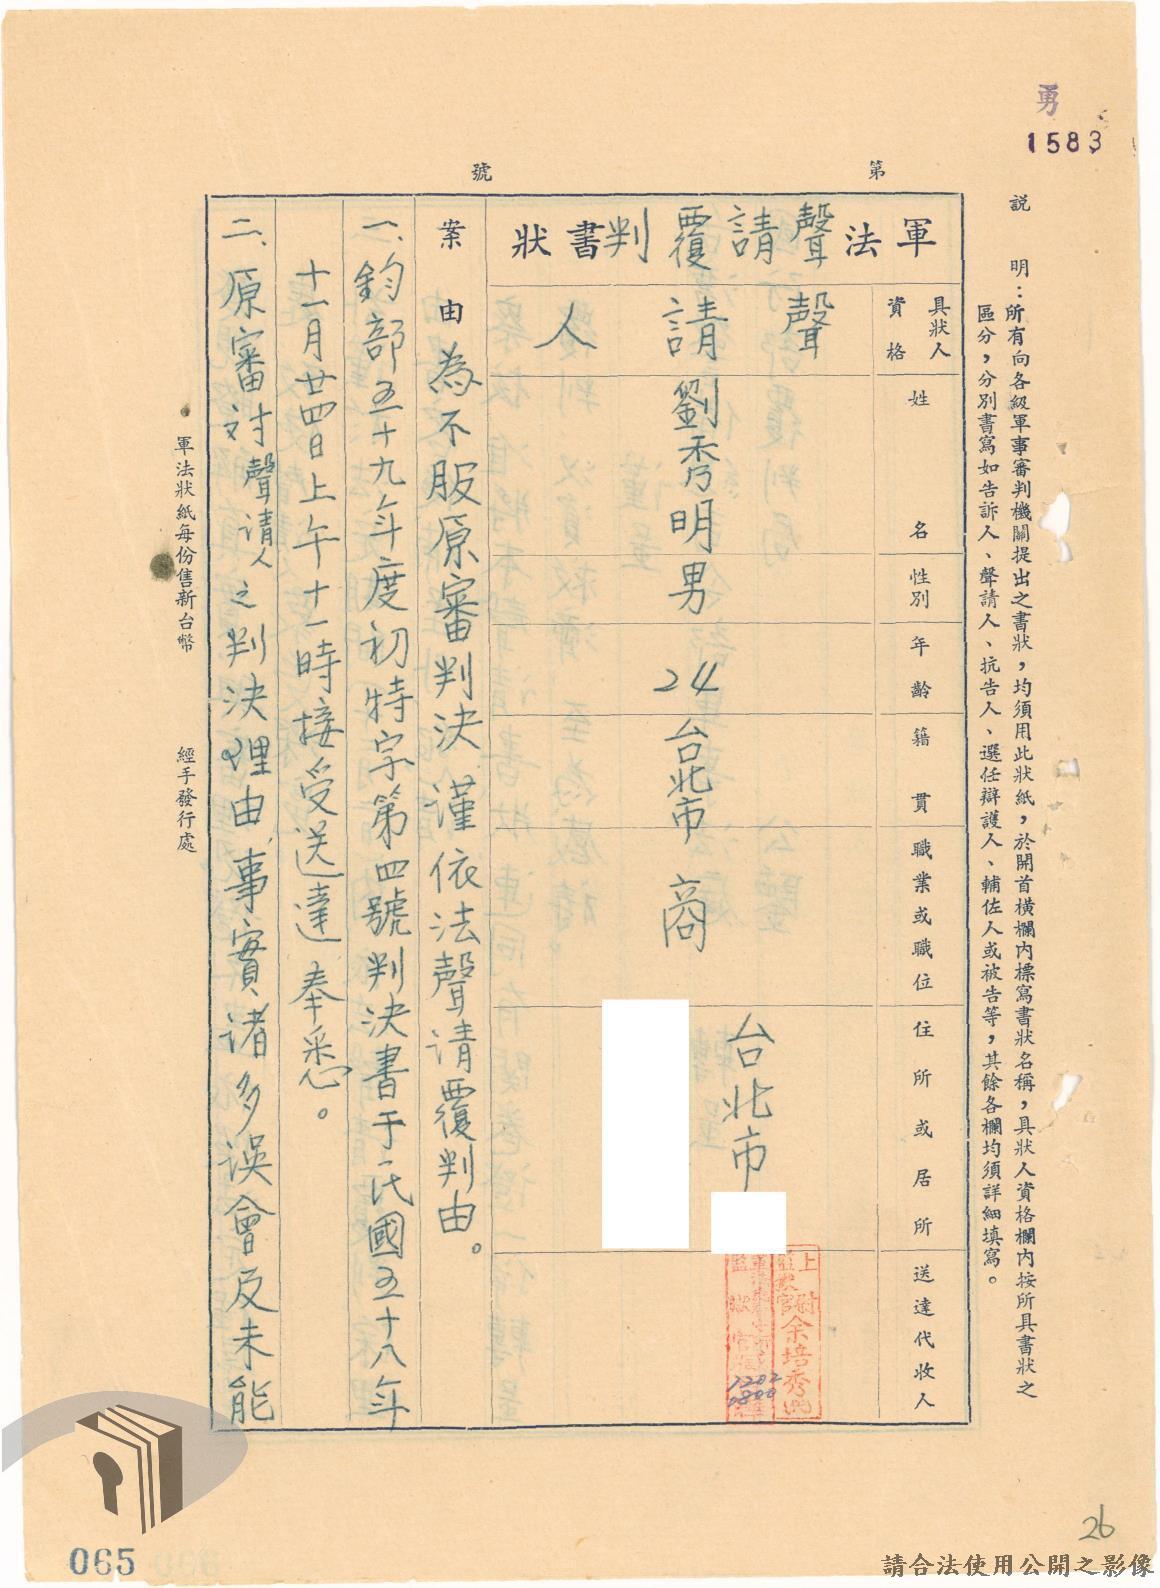 勇
1583
第　號
說　明：所有向各級軍事審判機關提出之書狀，均須用此狀紙，於開首橫欄內標寫書狀名稱，具狀人資格欄內按所具書狀之
區分，分別書寫如告訴人、聲請人、抗告人、選任辯護人、輔佐人或被告等，其餘各欄均須詳細填寫。
軍法聲請覆判書狀
具狀人
資格
姓名
性別
年齡
籍貫
職業或職位
住所或居所
送達代收人
聲請人
劉秀明
男
24
台北市
商
台北市
上尉
監獄官余培秀
1202
0800
案由　為不服原審判決謹依法聲請覆判由。
一、鈞部五十九年度初特字第四號判決書于民國五十八年
十一月廿四日上午十一時接受送達奉悉。
二、原審對聲请人之判決理由、事實诸多误會及未能
軍法狀紙每份售新台幣　經手發行處
065
26
請合法使用公開之影像